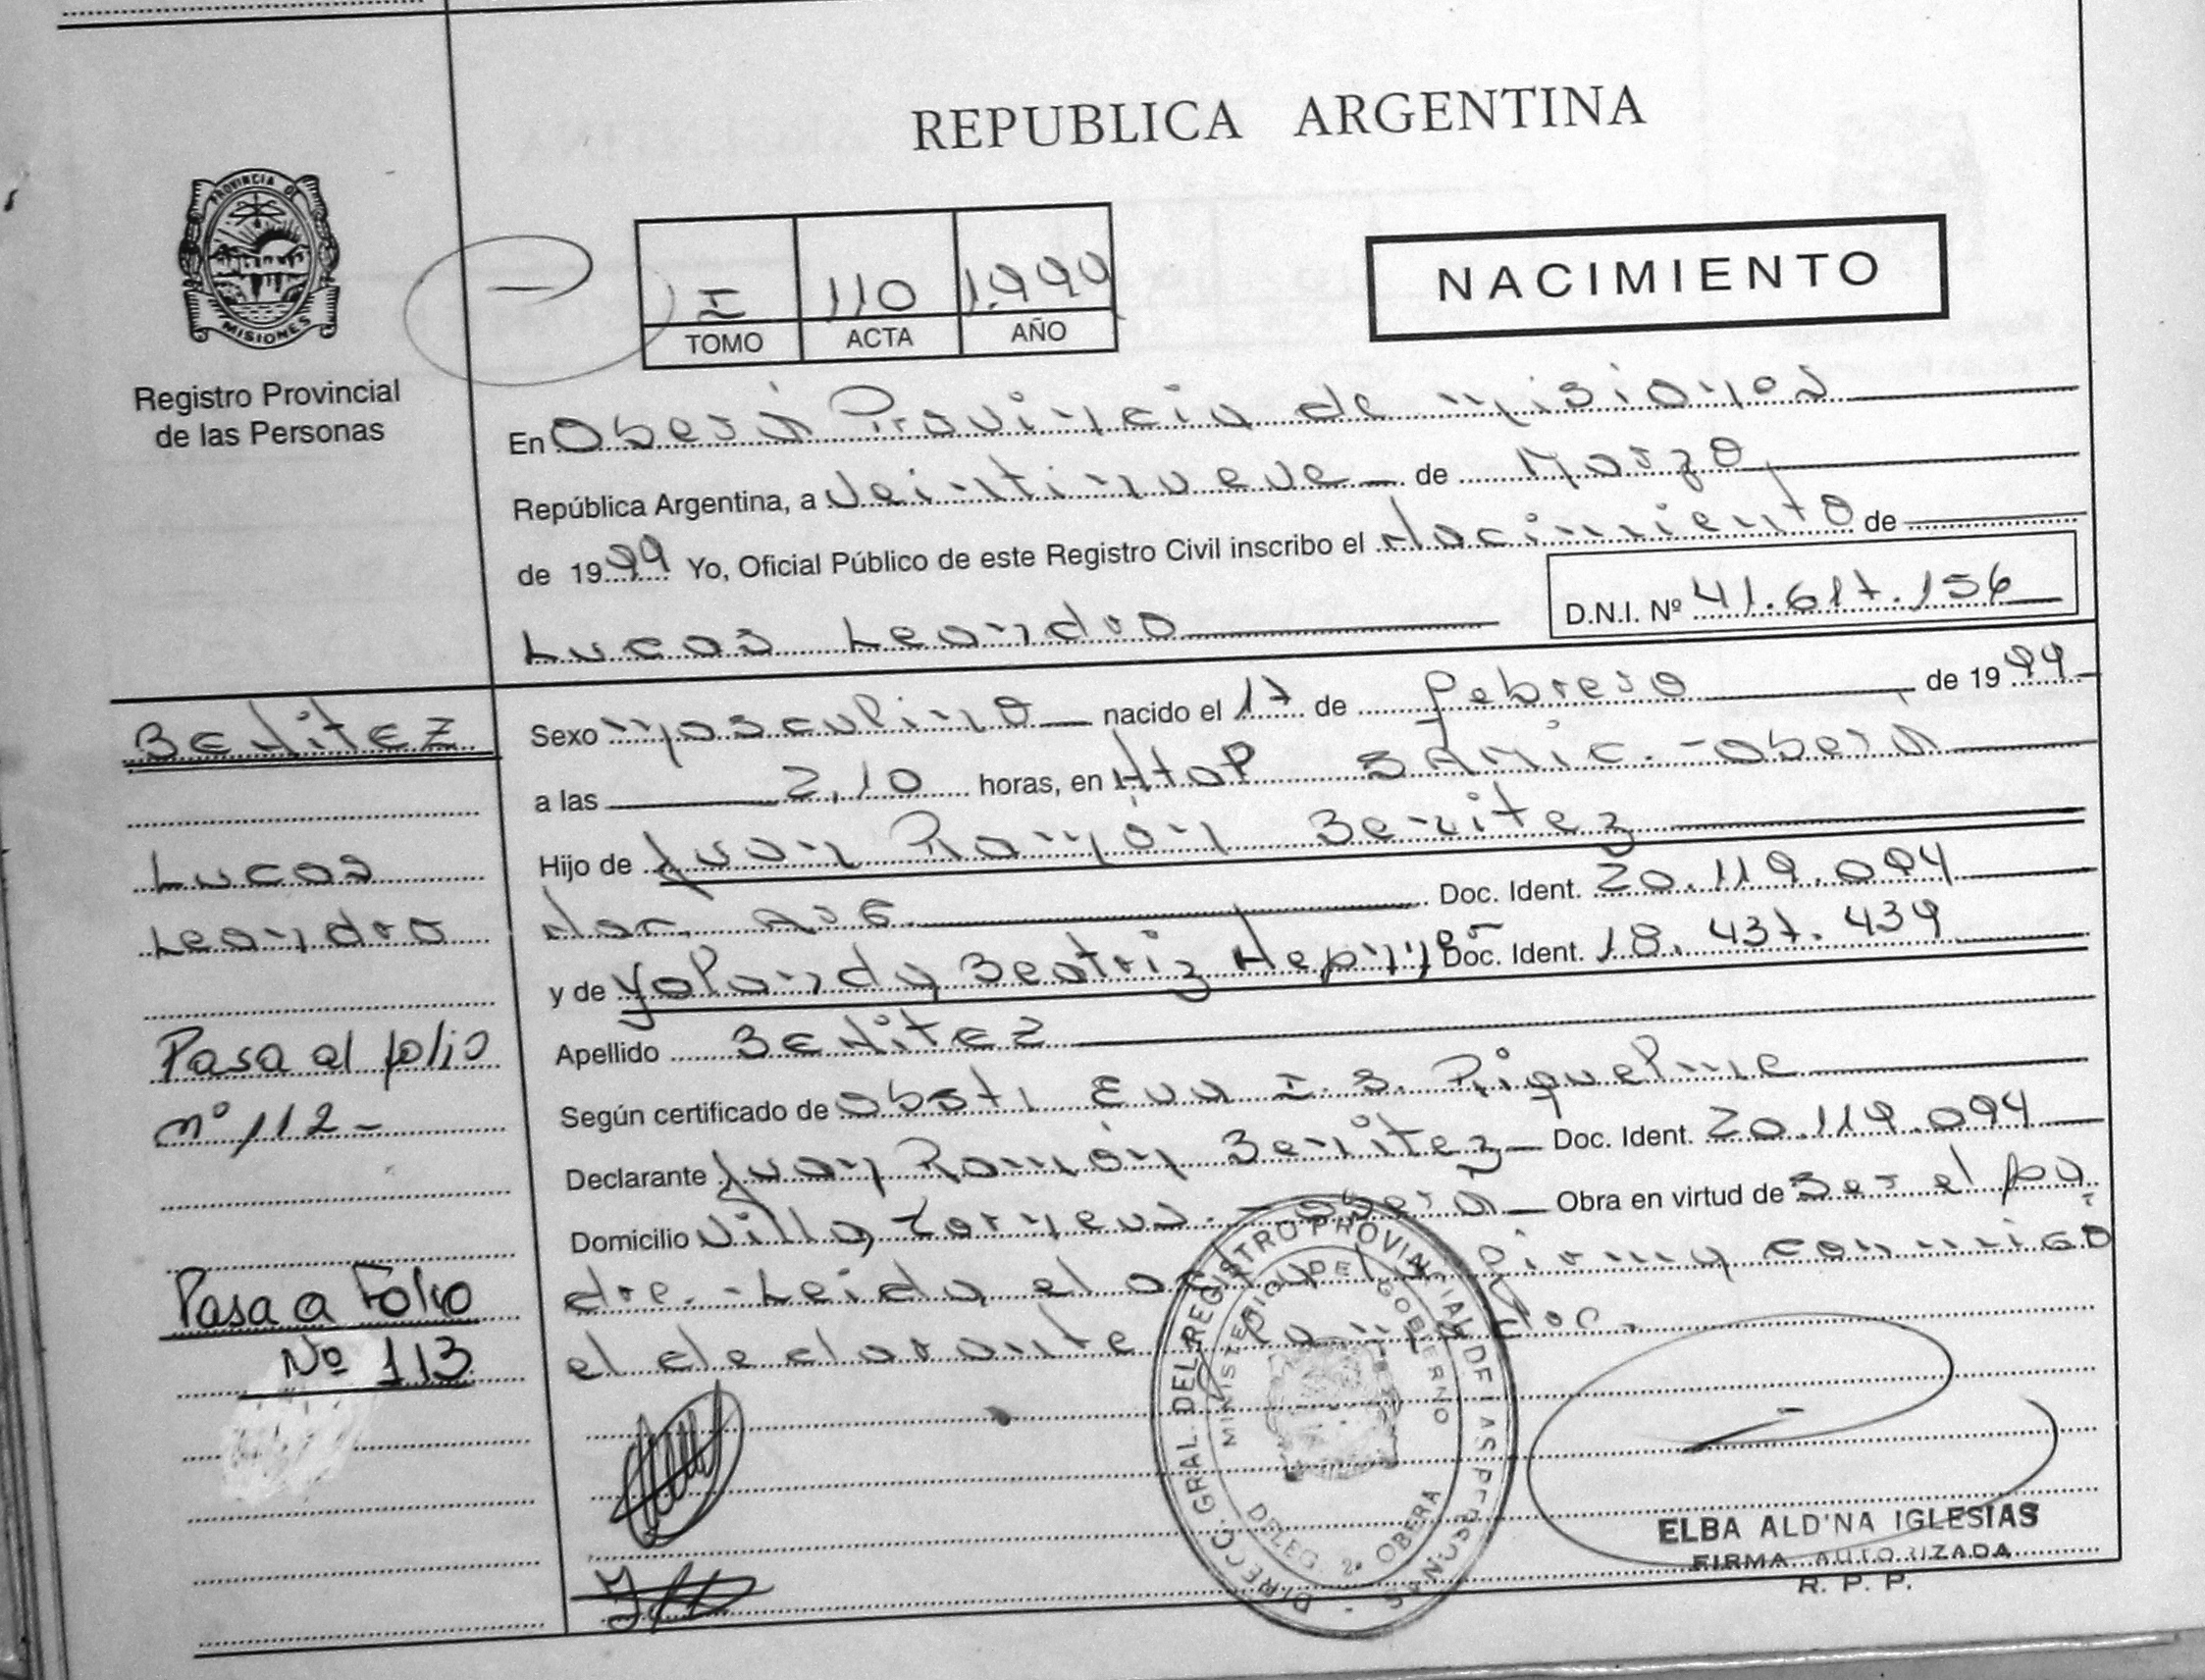 REPUBLICA ARGENTINA
PROVINCIA DE MISIONES
Registro Provincial
de las Personas
I 110 1.999
TOMO ACTA AÑO
NACIMIENTO
En Oberá Provincia de Misiones
República Argentina, a Veintinueve de Marzo
de 1999 Yo, Oficial Público de este Registro Civil inscribo el Nacimiento de
Lucas Leandro D.N.I. Nº 41.617.156
Benitez
Lucas
Leandro
Pasa al folio
nº 112-
Pasa a Folio
Nº 113
Sexo Masculino nacido el 17 de febrero de 1999
a las 2,10 horas, en Htal SAMIC.-Oberá
Hijo de Juan Ramón Benitez
Nac. Arg. Doc. Ident. 20.119.094
y de Yolanda Beatriz Doc. Ident. 18.437.439
Apellido Benitez
Según certificado de obst. Eva I. S. Riquelme
Declarante Juan Ramón Benitez Doc. Ident. 20.119.094
Domicilio Villa - Oberá Obra en virtud de Ser el pa
dre.-Leida el acta la firma conmigo
el declarante
DIRECC. GRAL. DEL REGISTRO PROVINCIAL DE LAS PERSONAS
MINISTERIO DE GOBIERNO
DELEG. 2ª OBERA
ELBA ALD'NA IGLESIAS
FIRMA AUTORIZADA
R. P. P.